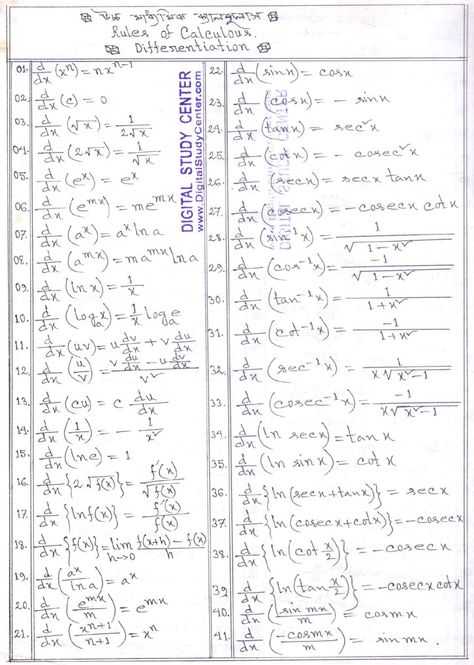 উচ্চ মাধ্যমিক ক্যালকুলাস
Rules of Calculous.
Differentiation
01. d/dx (xⁿ) = nxⁿ⁻¹
02. d/dx (c) = 0
03. d/dx (√x) = 1/(2√x)
04. d/dx (2√x) = 1/√x
05. d/dx (eˣ) = eˣ
06. d/dx (eᵐˣ) = meᵐˣ
07. d/dx (aˣ) = aˣ ln a
08. d/dx (aᵐˣ) = maᵐˣ ln a
09. d/dx (ln x) = 1/x
10. d/dx (logₐx) = 1/x logₐe
11. d/dx (uv) = u dv/dx + v du/dx
12. d/dx (u/v) = (v du/dx - u dv/dx)/v²
13. d/dx (cu) = c du/dx
14. d/dx (1/x) = - 1/x²
15. d/dx (ln e) = 1
16. d/dx {2√f(x)} = f'(x)/√f(x)
17. d/dx {ln f(x)} = f'(x)/f(x)
18. d/dx {f(x)} = lim h→0 (f(x+h) - f(x))/h
19. d/dx (aˣ/ln a) = aˣ
20. d/dx (eᵐˣ/m) = eᵐˣ
21. d/dx (xⁿ⁺¹/(n+1)) = xⁿ
DIGITAL STUDY CENTER
www.DigitalStudyCenter.com
22. d/dx (sin x) = cos x
23. d/dx (cos x) = - sin x
24. d/dx (tan x) = sec²x
25. d/dx (cot x) = - cosec²x
26. d/dx (sec x) = sec x tan x
27. d/dx (cosec x) = -cosec x cot x
28. d/dx (sin⁻¹x) = 1/√(1-x²)
29. d/dx (cos⁻¹x) = -1/√(1-x²)
30. d/dx (tan⁻¹x) = 1/(1+x²)
31. d/dx (cot⁻¹x) = -1/(1+x²)
32. d/dx (sec⁻¹x) = 1/(x√(x²-1))
33. d/dx (cosec⁻¹x) = -1/(x√(x²-1))
34. d/dx (ln sec x) = tan x
35. d/dx (ln sin x) = cot x
36. d/dx {ln(sec x + tan x)} = sec x
37. d/dx {ln(cosec x + cot x)} = -cosec x
38. d/dx {ln(cot x/2)} = -cosec x
39. d/dx {ln(tan x/2)} = -cosec x cot x
40. d/dx (sin mx/m) = cos mx
41. d/dx (-cos mx/m) = sin mx.